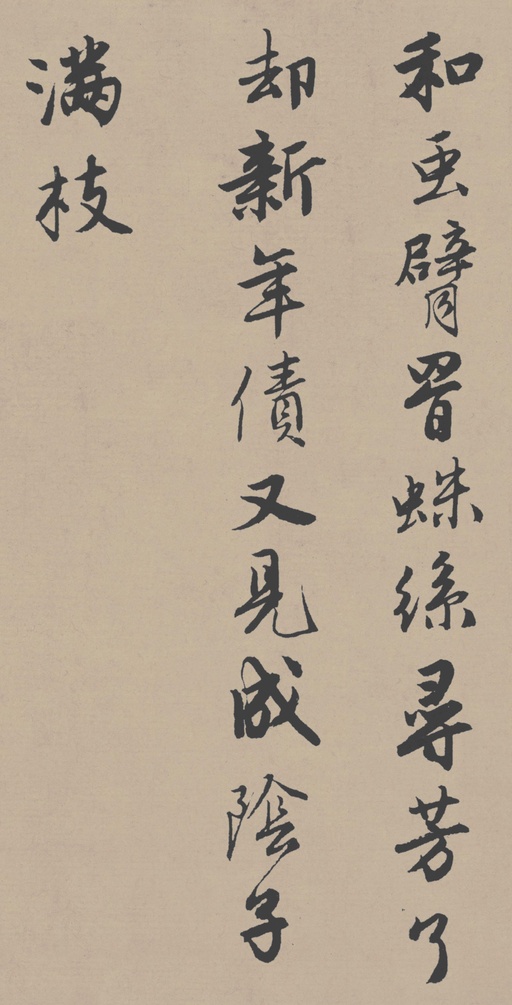 和虫臂罥蛛絲尋芳了
却新年債又見成陰子
滿枝